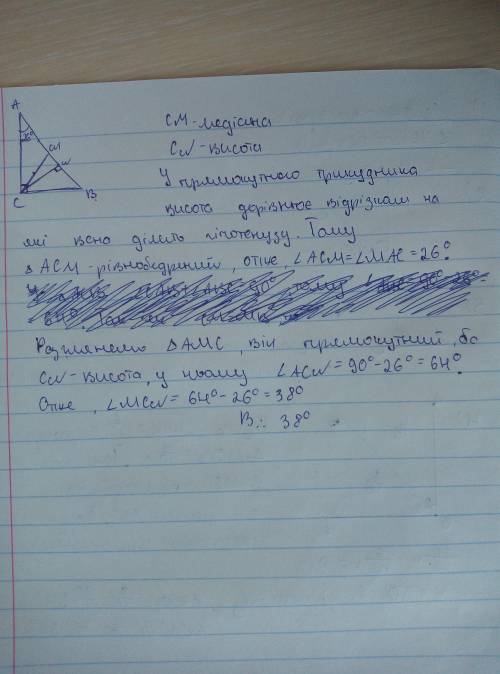 A
26°
M
N
C
B
CM - медіана
CN - висота
У прямокутного трикутника
висота дорівнює відрізкам на
які вона ділить гіпотенузу. Тому
△ACM - рівнобедрений, отже, ∠ACM = ∠MAC = 26°.
Розглянемо △AMC, він прямокутний, бо
CN - висота, у ньому ∠ACN = 90° - 26° = 64°.
Отже, ∠MCN = 64° - 26° = 38°
В.: 38°